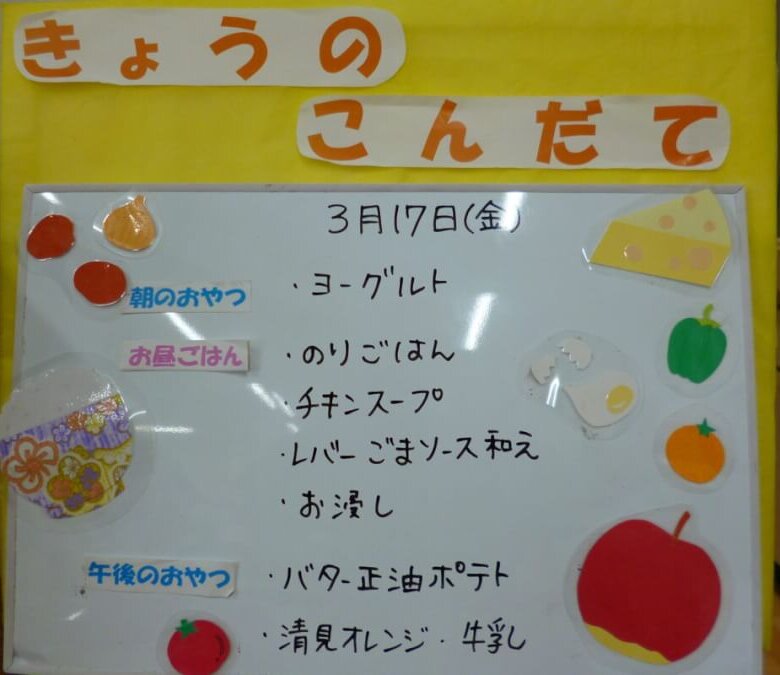 きょうの
こんだて
3月17日(金)
朝のおやつ ・ヨーグルト
お昼ごはん ・のりごはん
・チキンスープ
・レバーごまソース和え
・お浸し
午後のおやつ ・バター正油ポテト
・清見オレンジ・牛乳し